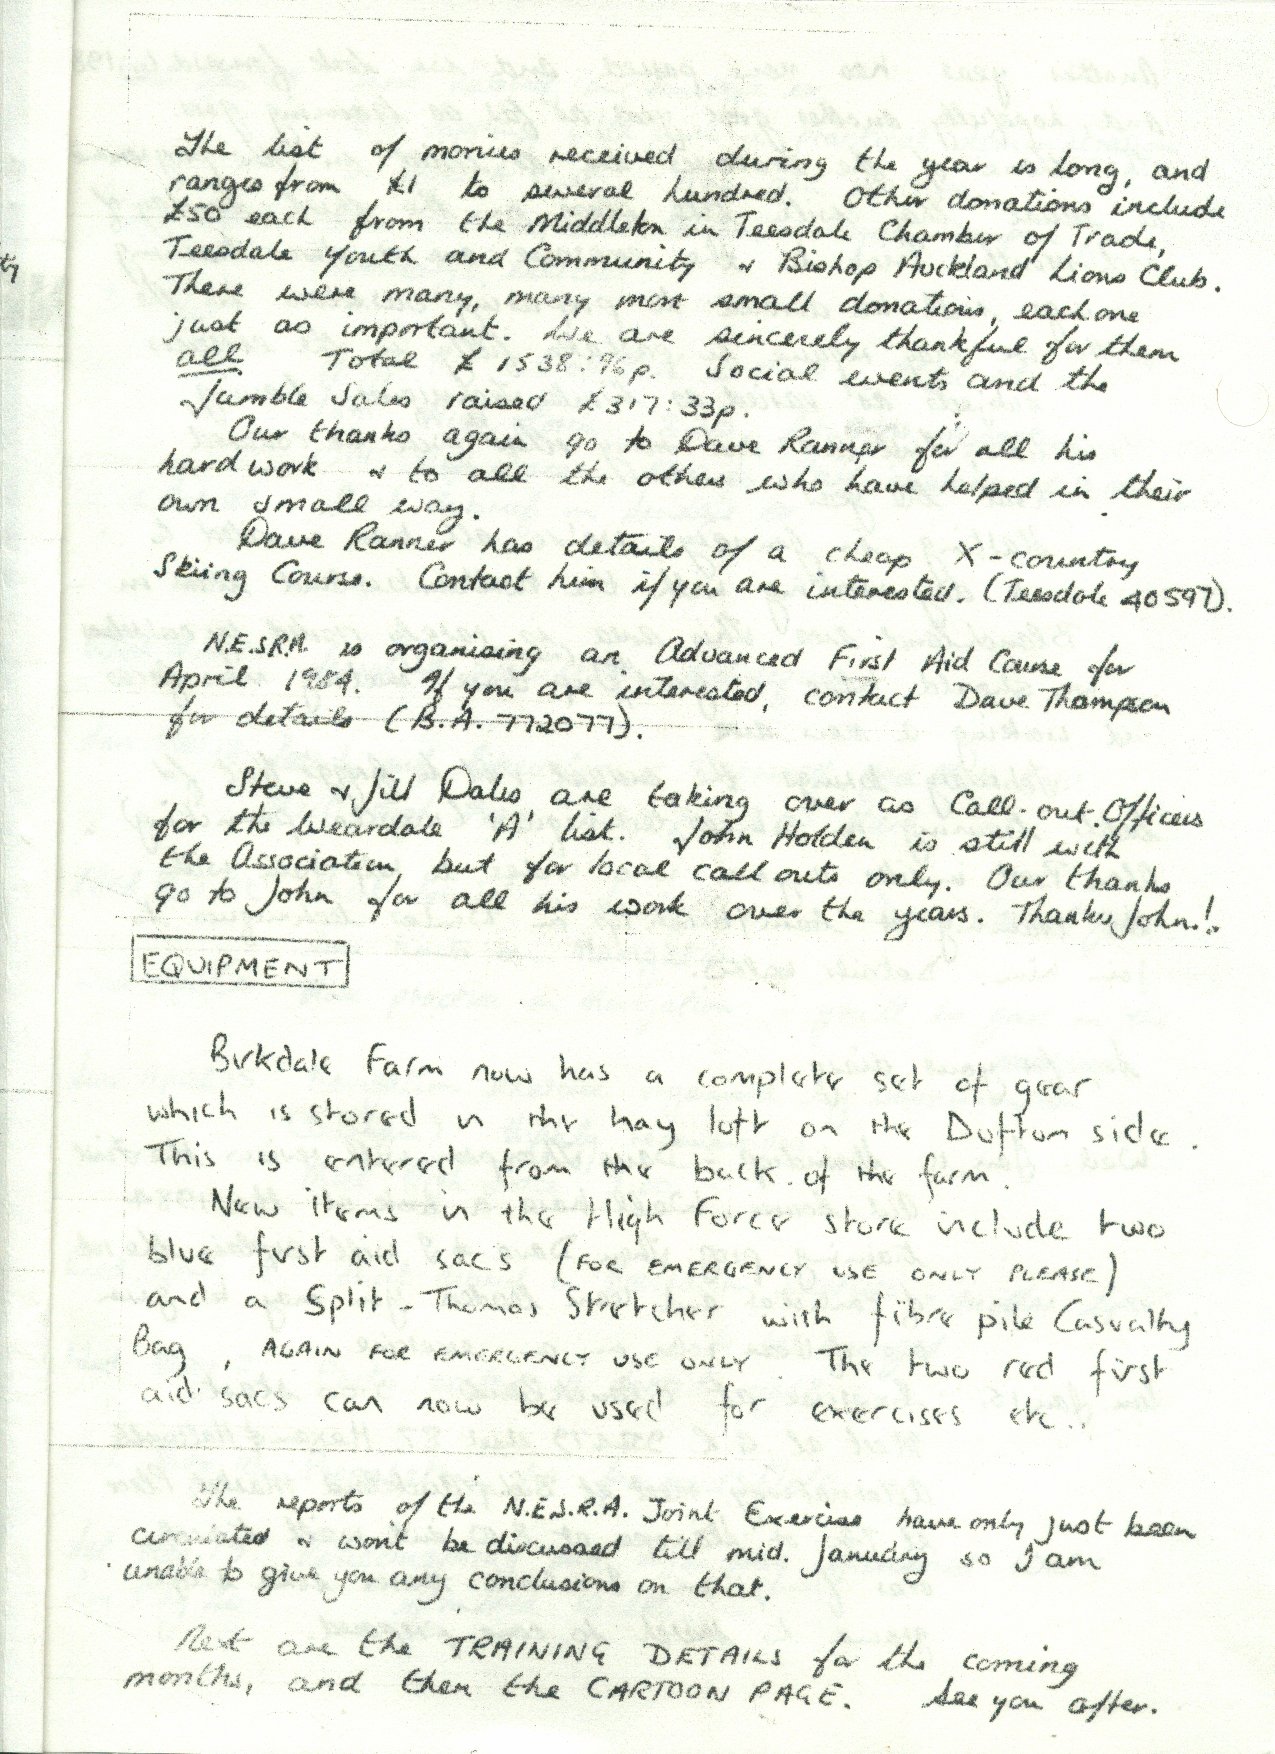 The list of monies received during the year is long, and
ranges from £1 to several hundred. Other donations include
£50 each from the Middleton in Teesdale Chamber of Trade,
Teesdale Youth and Community & Bishop Auckland Lions Club.
There were many, many more small donations, each one
just as important. We are sincerely thankful for them
all Total £1538:96p. Social events and the
Jumble Sales raised £317:33p.
Our thanks again go to Dave Ranner for all his
hard work & to all the others who have helped in their
own small way.
Dave Ranner has details of a cheap X-country
Skiing Course. Contact him if you are interested. (Teesdale 40597).
N.E.S.R.A. is organising an Advanced First Aid Course for
April 1984. If you are interested, contact Dave Thompson
for details (B.A. 772077).
Steve & Jill Dales are taking over as Call-out Officers
for the Weardale 'A' list. John Holden is still with
the Association, but for local call outs only. Our thanks
go to John for all his work over the years. Thanks John!.
EQUIPMENT
Birkdale Farm now has a complete set of gear
which is stored in the hay loft on the Dufton side.
This is entered from the back of the farm.
New items in the High Force store include two
blue first aid sacs (FOR EMERGENCY USE ONLY PLEASE)
and a Split-Thomas Stretcher with fibre pile Casualty
Bag, AGAIN FOR EMERGENCY USE ONLY. The two red first
aid sacs can now be used for exercises etc..
The reports of the N.E.S.R.A. Joint Exercise have only just been
circulated & won't be discussed till mid. January so I am
unable to give you any conclusions on that.
Next are the TRAINING DETAILS for the coming
months, and then the CARTOON PAGE. See you after.